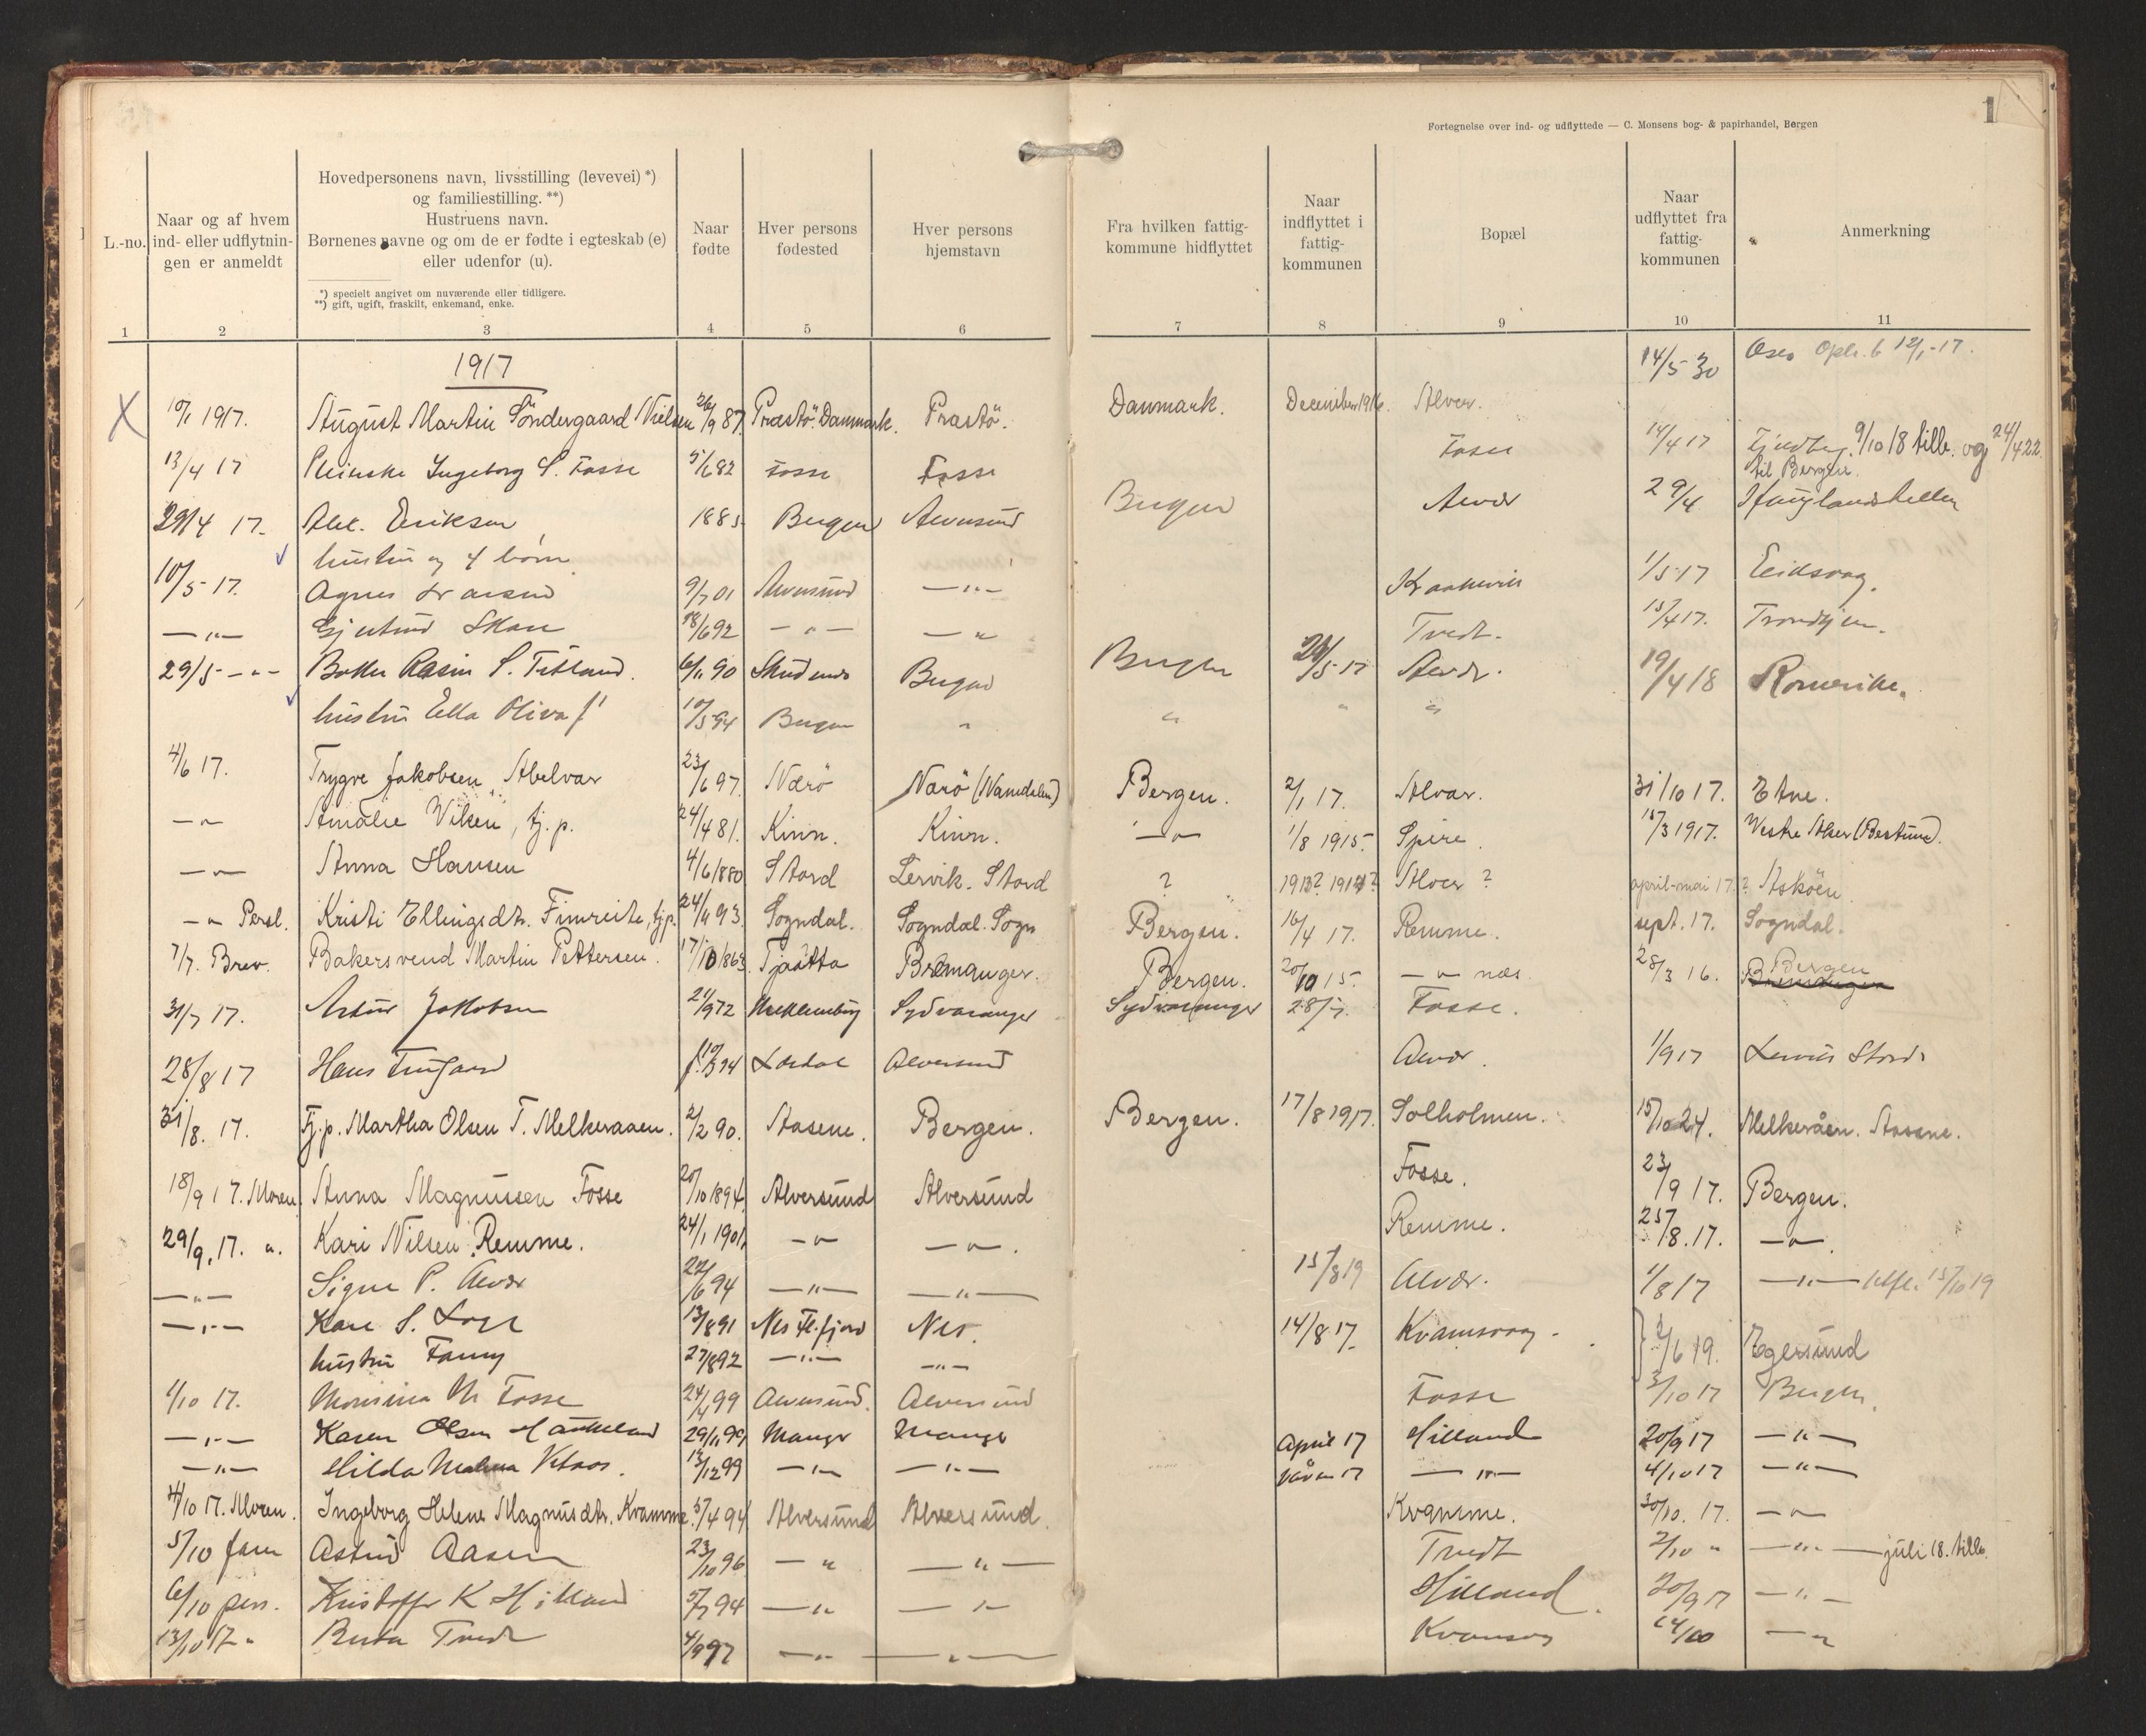 1
Fortegnelse over ind- og udflyttede — C. Monsens bog- & papirhandel, Bergen
L.-no.
Naar og af hvem
ind- eller udflytnin-
gen er anmeldt
Hovedpersonens navn, livsstilling (levevei) *)
og familiestilling. **)
Hustruens navn.
Børnenes navne og om de er fødte i egteskab (e)
eller udenfor (u).
*) specielt angivet om nuværende eller tidligere.
**) gift, ugift, fraskilt, enkemand, enke.
Naar
fødte
Hver persons
fødested
Hver persons
hjemstavn
Fra hvilken fattig-
kommune hidflyttet
Naar
indflyttet i
fattig-
kommunen
Bopæl
Naar
udflyttet fra
fattig-
kommunen
Anmerkning
1 2 3 4 5 6 7 8 9 10 11
1917
14/5 30 12/1-17.
X 10/1 1917. August Martin Söndergaard Nielsen 26/9 87. Præstö. Danmark. Præstö. Danmark. December 1916. Alver.
13/4 17 Ingeborg S. Fosse Fosse Fosse Fosse 14/4 17 9/10 18 tilb. og 24/4 22
til Bergen.
29/4 17. Eriksen 1885 Bergen Alversund Bergen Alvær 29/4
hustru og 4 børn
10/5 17. Agnes Larsen 9/7 01 Alversund —"— 1/5 17 Eidsvaag.
—"— Skare 18/6 92 —"— —"— Tvedt. 15/4 17. Trondhjem.
29/5 —"— S. Titland. 6/11 90 Skudenes Bergen Bergen 29/5 17 Alvær. 19/4 18 Romerike.
hustru Ella Oliva 10/5 94 Bergen " " " "
4/6 17. Trygve Jakobsen Abelvær 23/6 97. Nærö Nærö (Namdalen) Bergen. 2/1 17. Alvær. 31/10 17. Etne.
—"— Amalie Vilsen, tj. p. 24/4 81. Kinn. Kinn. —"— 1/8 1915. Spire. 15/3 1917. Vestre Aker (Bestum).
—"— Anna Hansen 4/6 1880 Stord Lervik. Stord ? Alvær ? april-mai 17. ? Askøen.
—"— Persl. Kristi Ellingsdtr. Fimreite, tj.p. 24/11 93. Sogndal. Sogndal. Sogn Bergen. 16/4 17. Remme. sept. 17. Sogndal.
7/7. Brev. Bakersvend Martin Pettersen. 17/10 1863. Tjøtta Bremanger. Bergen. 20/10 15. —"— næs 28/3 16. Bergen
Bremanger
31/7 17. Artur Jakobsen 21/9 72 Mecklenburg Sydvaranger Sydvaranger 28/7. Fosse.
28/8 17 Hans Alversund Alvær. 1/9 17 Lervik Stord
31/8. 17. Tj.p. Martha Olsen T. Melkeraaen. 2/2 90. Aasene. Bergen. Bergen. 17/8 1917. Solholmen. 15/10 24. Melkeråen. Aasane.
18/9 17. Moren. Anna Magnussen Fosse 20/10 1894. Alversund Alversund Fosse. 23/9 17. Bergen.
29/9. 17. ". Kari Nilsen Remme. 24/1 1901. —"— —"—. Remme. 25/8. 17. —"—.
—"— Signe P. Alvær 22/6 94 —"— —"— 15/8 19 Alvær. 1/8 17 —"— 15/10 19
—"— Kare S. 13/8 91 Nes Fl.fjord Nes. 14/8 17. Kvamsvaag. 2/6 19. Egersund
hustru Fanny 27/8 92 —"— —"—
1/10 17. Monsina M Fosse 24/4 99 Alversund. Alversund Fosse 3/10 17 Bergen.
—"— Karen Olsen 29/11 99 Manger Manger April 17 Hilland 20/9 17 —"—
—"— Hilda 13/12 99 —"— —"— våren 17 —"— 4/10 17 —"—
4/10 17. Moren. Ingeborg Helene Magnusdtr. Kvamme. 5/4 94 Alversund Alversund. Kvamme. 30/10. 17. —"—
5/10 faren Astrid Aasen 23/10 96 —"— —"— Tvedt 2/10 " —"— juli 18. tilb.
6/10 pers. Kristoffer K Hilland 5/7 94 —"— —"— Hilland. 20/9 17 —"—
13/10 17 " Berta Tvedt 4/9 97 —"— —"— Kvamsvaag —"—